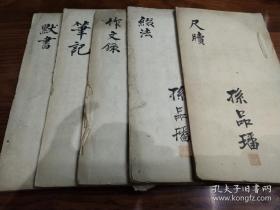 尺牘
孫品璠
綴法
孫品璠
作文錄
筆記
默書
孔夫子旧书网